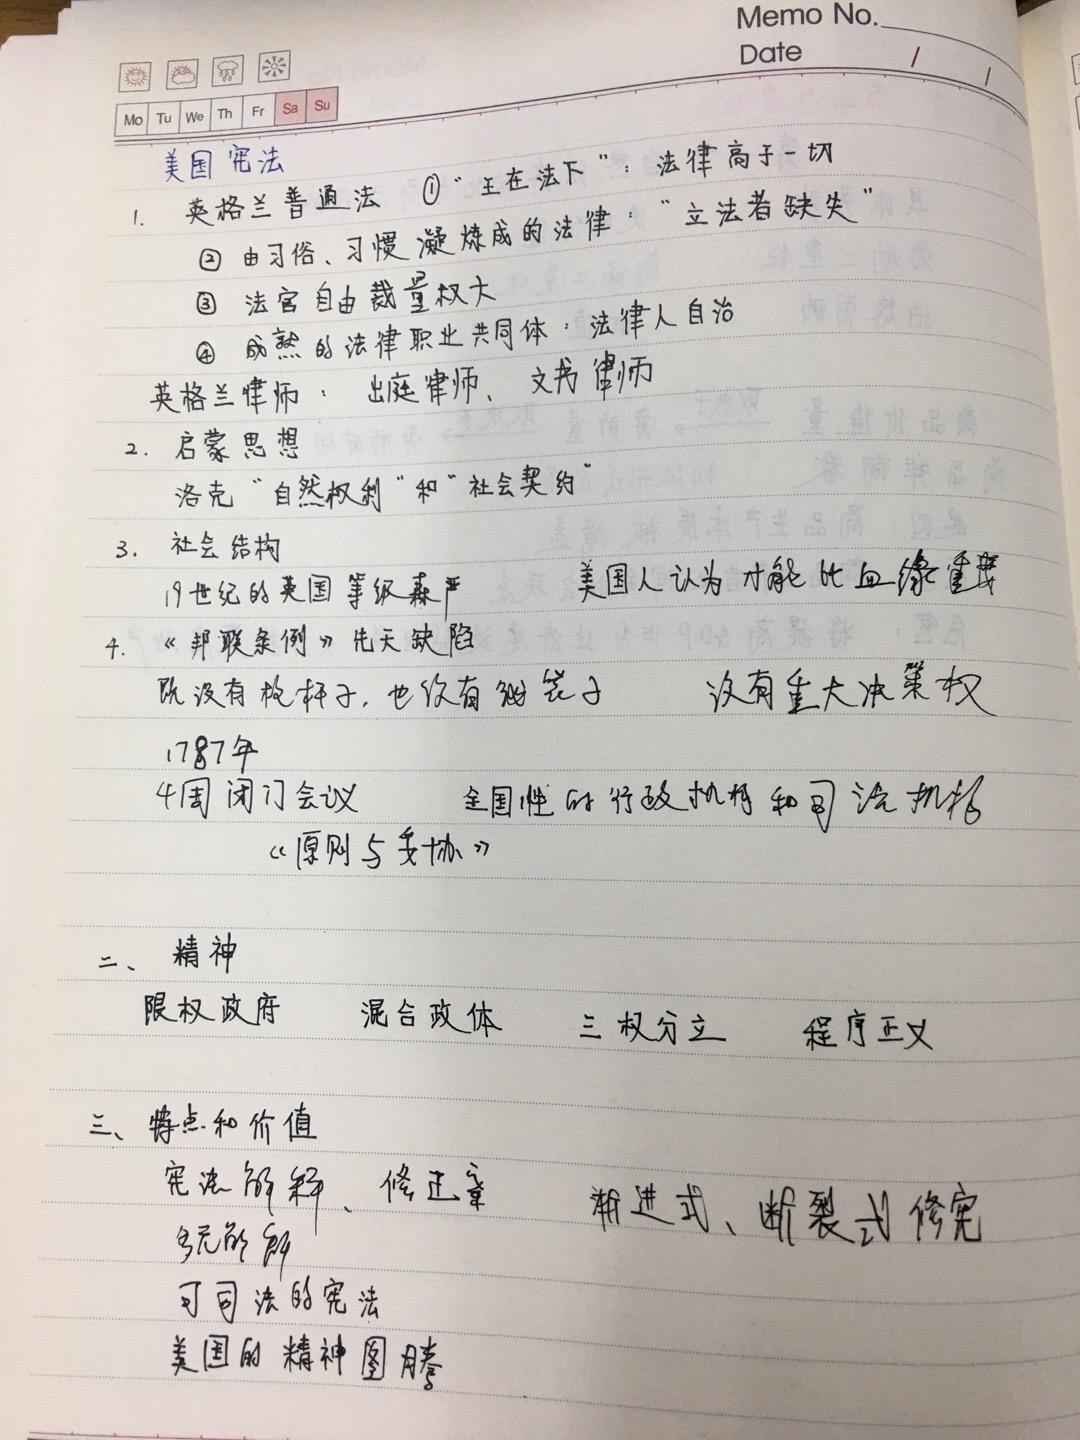 Memo No.
Date / /
Mo Tu We Th Fr Sa Su
美国宪法
1. 英格兰普通法 ①“王在法下”：法律高于一切
② 由习俗、习惯凝炼成的法律：“立法者缺失”
③ 法官自由裁量权大
④ 成熟的法律职业共同体：法律人自治
英格兰律师： 出庭律师、 文书律师
2. 启蒙思想
洛克“自然权利”和“社会契约”
3. 社会结构
19世纪的英国等级森严 美国人认为才能比血缘重要
4. 《邦联条例》先天缺陷
既没有枪杆子，也没有钱袋子 没有重大决策权
1787年
4周闭门会议 全国性的行政机构和司法机构
《原则与妥协》
二、 精神
限权政府 混合政体 三权分立 程序正义
三、特点和价值
宪法解释、修正案 渐进式、断裂式修宪
可司法的宪法
美国的精神图腾